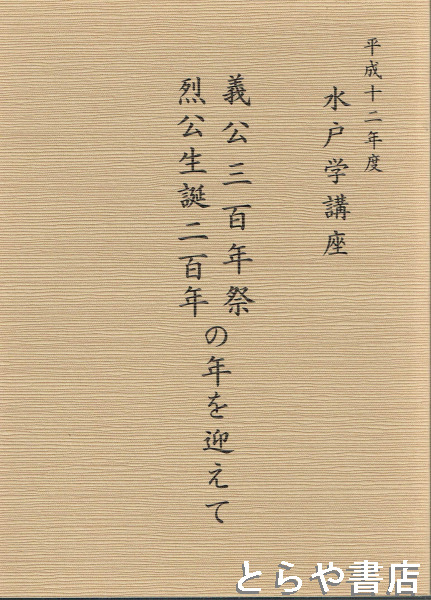 平成十二年度
水戸学講座
義公三百年祭
烈公生誕二百年
の年を迎えて
とらや書店